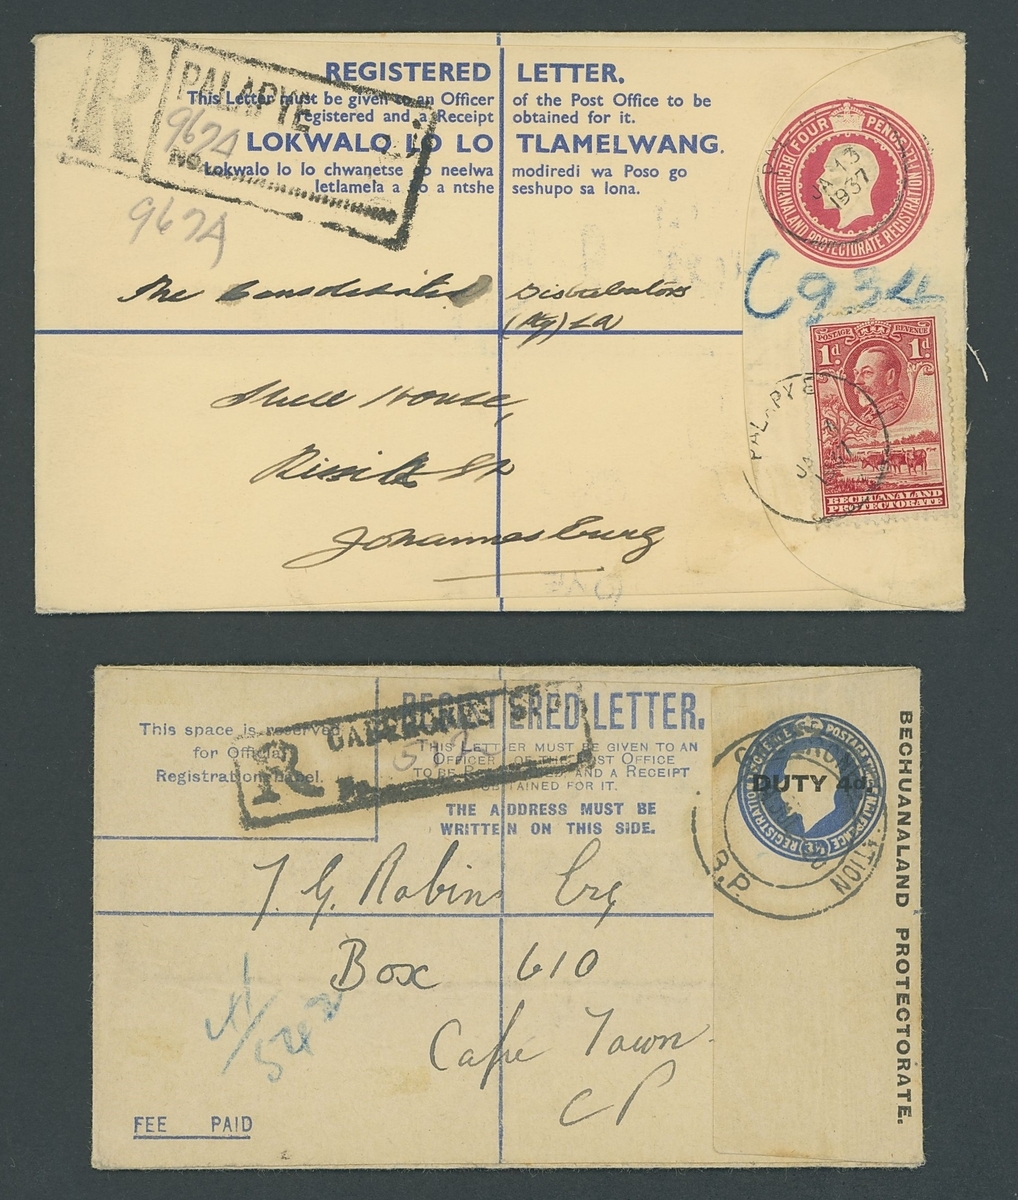 REGISTERED LETTER.
This Letter must be given to an Officer of the Post Office to be
registered and a Receipt obtained for it.
LOKWALO LO LO TLAMELWANG.
Lokwalo lo lo chwanetse go neelwa modiredi wa Poso go
letlamela a go a ntshe seshupo sa lona.
R PALAPYE
No.
967A
967A
FOUR PENCE
BECHUANALAND PROTECTORATE REGISTRATION
JA 13
1937
The Consolidated Distributors
(Pty) Ltd
Shell House,
Rissik St
Johannesburg
POSTAGE REVENUE
1d. 1d.
PALAPYE
BECHUANALAND
PROTECTORATE
REGISTERED LETTER.
This space is reserved
for Official
Registration Label.
THIS LETTER MUST BE GIVEN TO AN
OFFICER OF THE POST OFFICE
TO BE REGISTERED, AND A RECEIPT
OBTAINED FOR IT.
THE ADDRESS MUST BE
WRITTEN ON THIS SIDE.
R GABERONES STN
No.
DUTY 4d.
B.P.
BECHUANALAND PROTECTORATE.
T. G. Robins Esq
Box 610
Cape Town
CP
542
FEE PAID